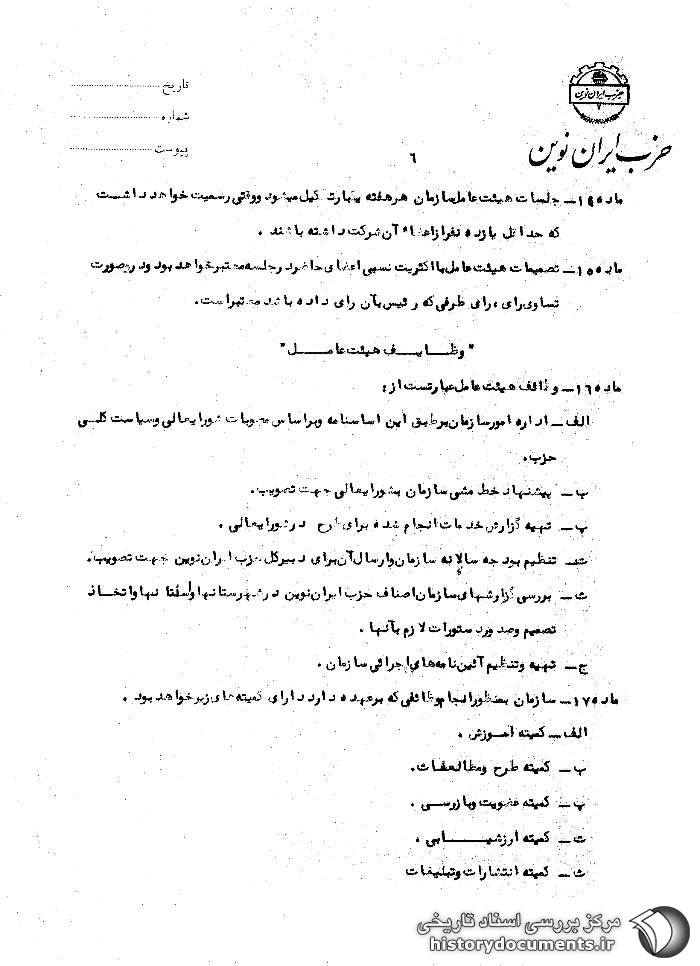 تاریخ
شماره
پیوست
حزب ایران نوین
حزب ایران نوین
۶
ماده ۱۴ـ جلسات هیئت عامل سازمان هر هفته یکبار تشکیل میشود ووقتی رسمیت خواهد داشت
که حداقل یازده نفر از اعضاء آن شرکت داشته باشند .
ماده ۱۵ـ تصمیمات هیئت عامل با اکثریت نسبی اعضای حاضر در جلسه معتبر خواهد بود و در صورت
تساوی رای ، رای طرفی که رئیس بآن رای داده باشد معتبر است.
" وظـایـف هیئت عامـل "
ماده ۱۶ـ وظائف هیئت عامل عبارتست از :
الف ـ اداره امور سازمان برطبق این اساسنامه وبراساس مصوبات شورایعالی وسیاست کلـی
حزب.
ب ـ پیشنهاد خط مشی سازمان بشورایعالی جهت تصویب.
پ ـ تهیه گزارش خدمات انجام شده برای طرح در شورایعالی .
ت ـ تنظیم بودجه سالانه سازمان وارسال آن برای دبیرکل حزب ایران نوین جهت تصویب.
ث ـ بررسی گزارشهای سازمان اصناف حزب ایران نوین در شهرستانها و استانها واتخـاذ
تصمیم وصدور دستورات لازم بآنها .
ج ـ تهیه وتنظیم آئین نامه های اجرائی سازمان .
ماده ۱۷ـ سازمان بمنظور انجام وظائفی که برعهده دارد دارای کمیته های زیر خواهد بود .
الف ـ کمیته آموزش .
ب ـ کمیته طرح ومطالعات.
پ ـ کمیته عضویت وبازرسی .
ت ـ کمیته ارزشیـابی .
ث ـ کمیته انتشارات وتبلیغات
مرکز بررسی اسناد تاریخی
historydocuments.ir